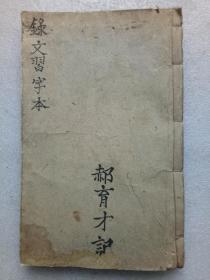 錄文習字本
郝育才記